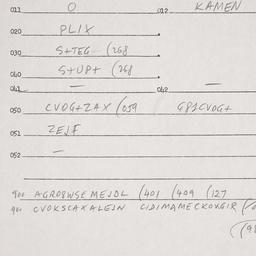 011 O 012 KAMEN
020 PLIX
030 S+TEG (268
060 S+UP+ (268
061 — 062 —
050 CVOG+ZAX (059 G81CVOG+
051 ZEJF
052 —
900 AGRO8WSEMEJDL (401 (409 (127
900 CVOKSCAXALEJN CIDIMAMECKOXGIR